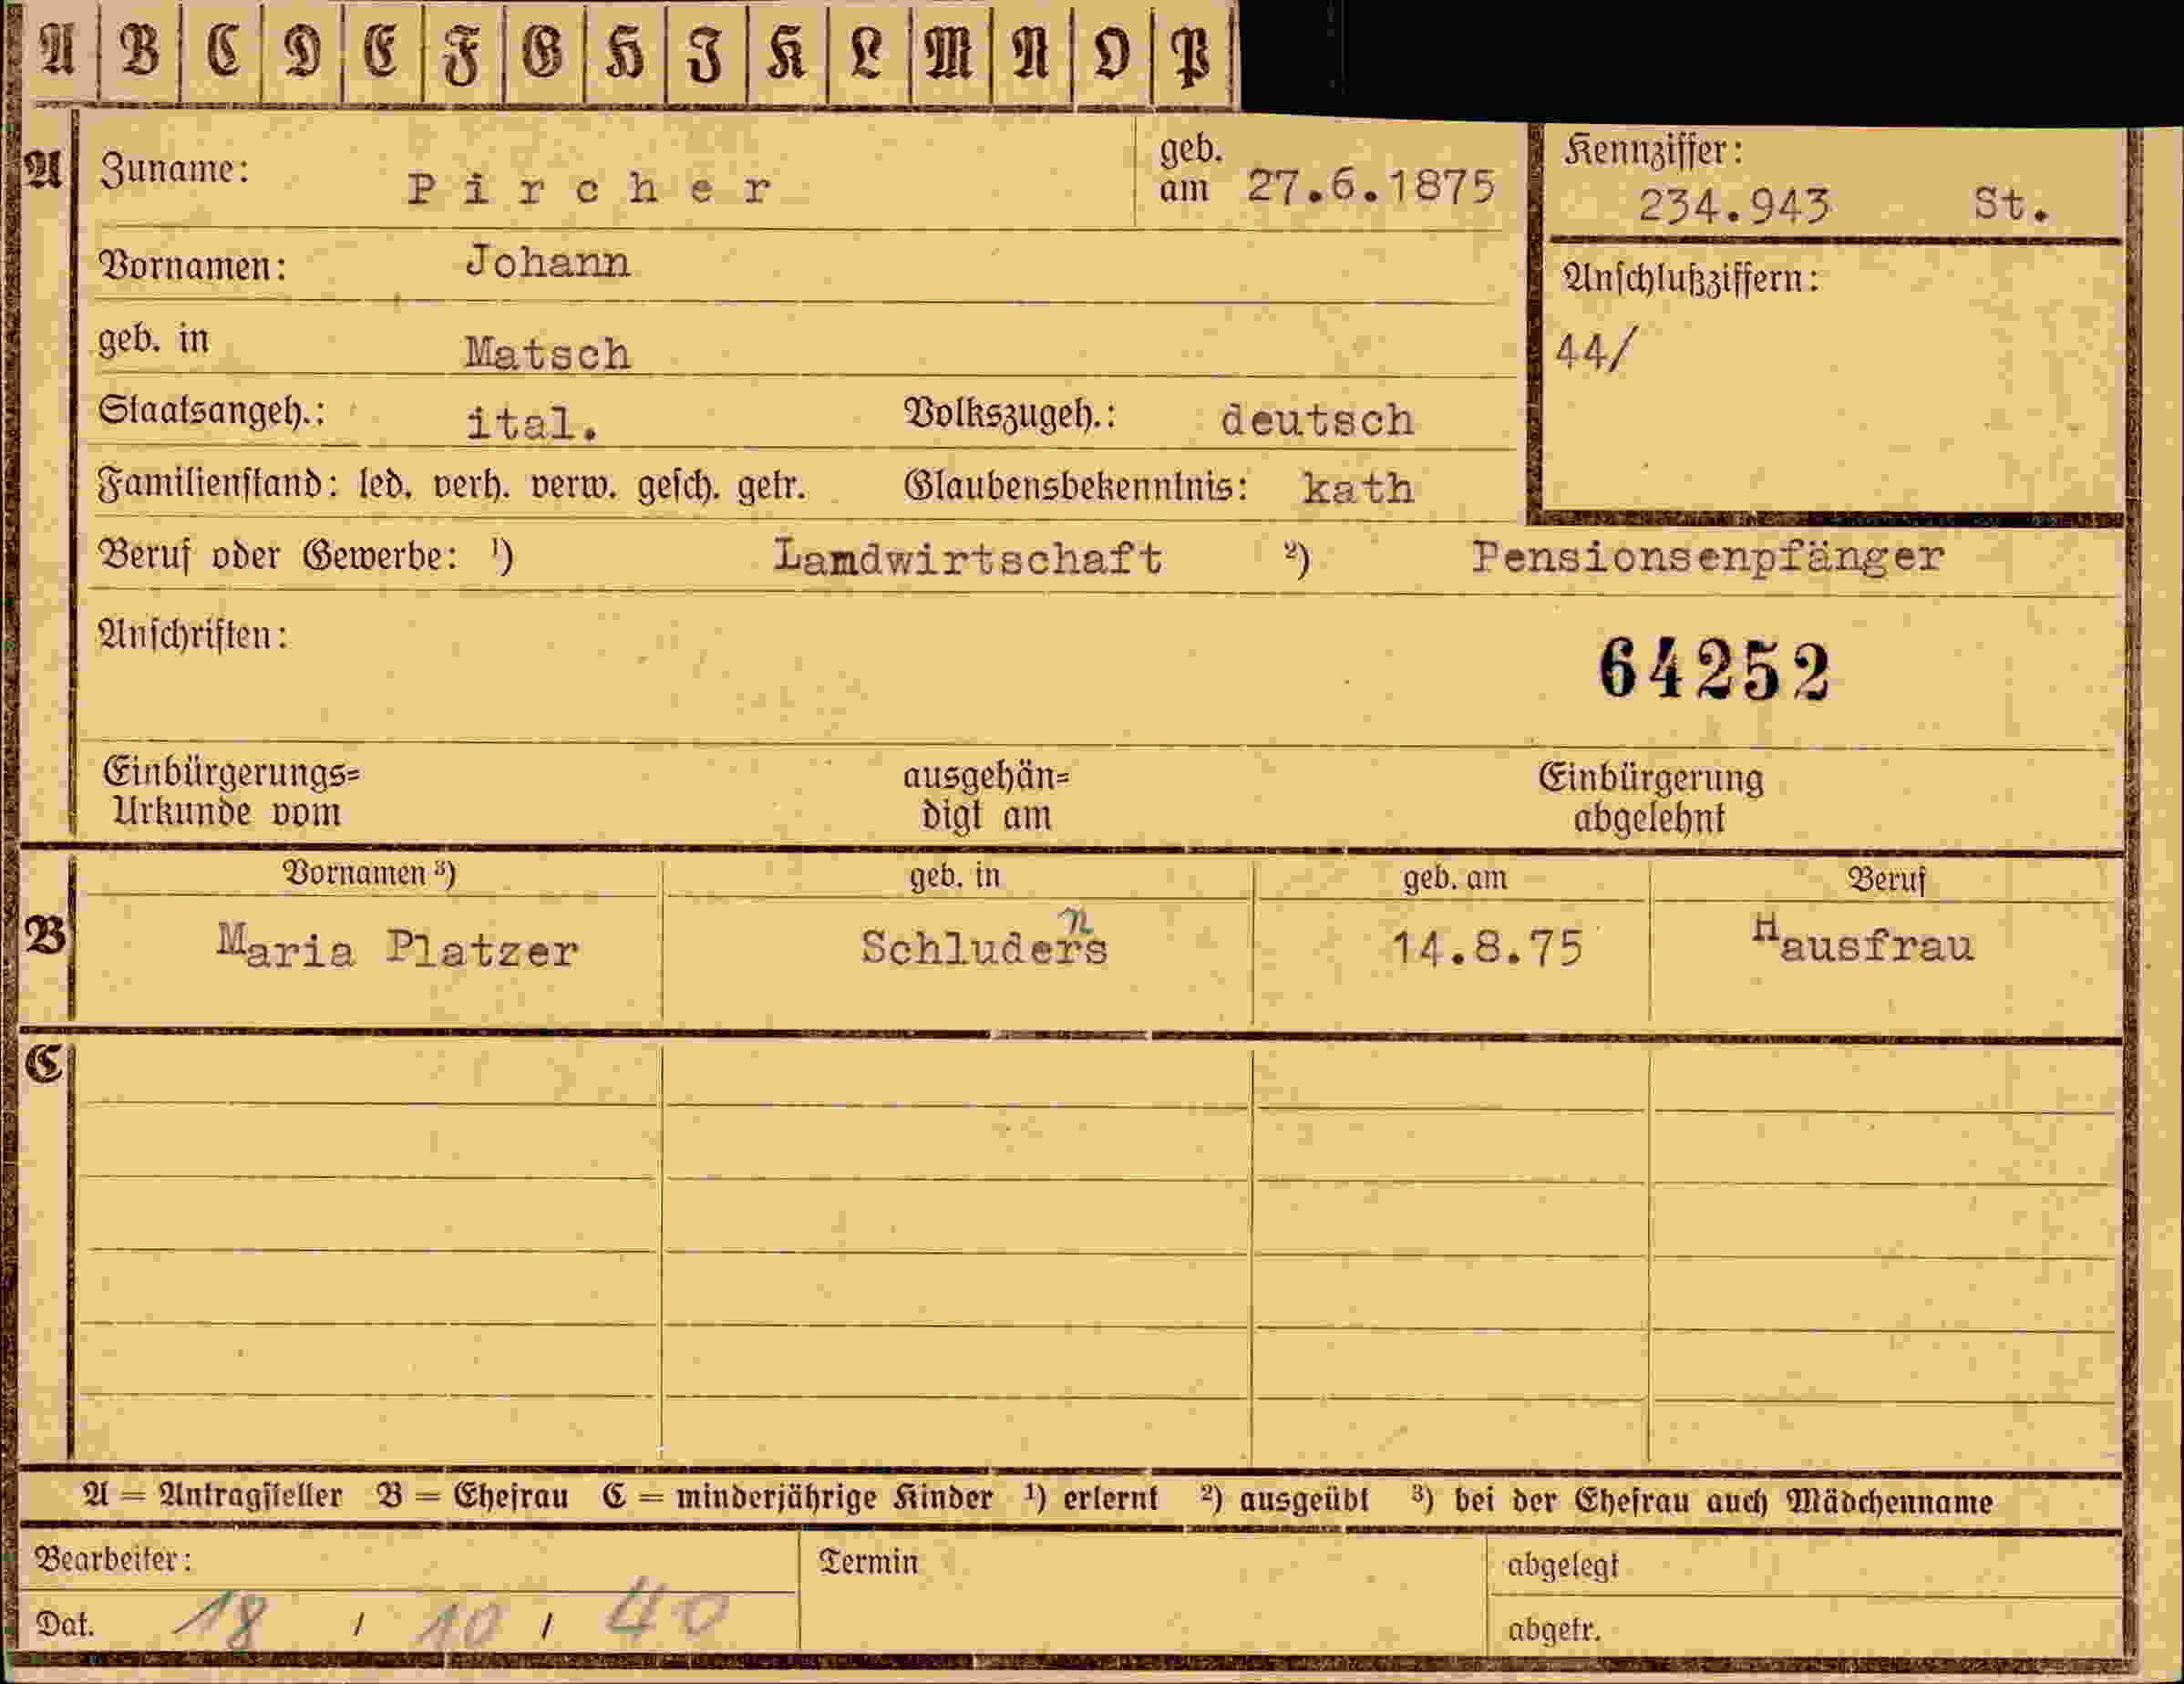 A B C D E F G H I K L M N O P
A Zuname: Pircher geb. am 27.6.1875 Kennziffer: 234.943 St.
Vornamen: Johann Anschlußziffern:
geb. in Matsch 44/
Staatsangeh.: ital. Volkszugeh.: deutsch
Familienstand: led. verh. verw. gesch. getr. Glaubensbekenntnis: kath
Beruf oder Gewerbe: ¹) Lamdwirtschaft ²) Pensionsenpfänger
Anschriften: 64252
Einbürgerungs= ausgehän= Einbürgerung
Urkunde vom digt am abgelehnt
Vornamen ³) geb. in geb. am Beruf
n
B Maria Platzer Schluders 14.8.75 Hausfrau
C
A = Antragsteller B = Ehefrau C = minderjährige Kinder ¹) erlernt ²) ausgeübt ³) bei der Ehefrau auch Mädchenname
Bearbeiter: Termin abgelegt
Dat. 18 / 10 / 40 abgetr.